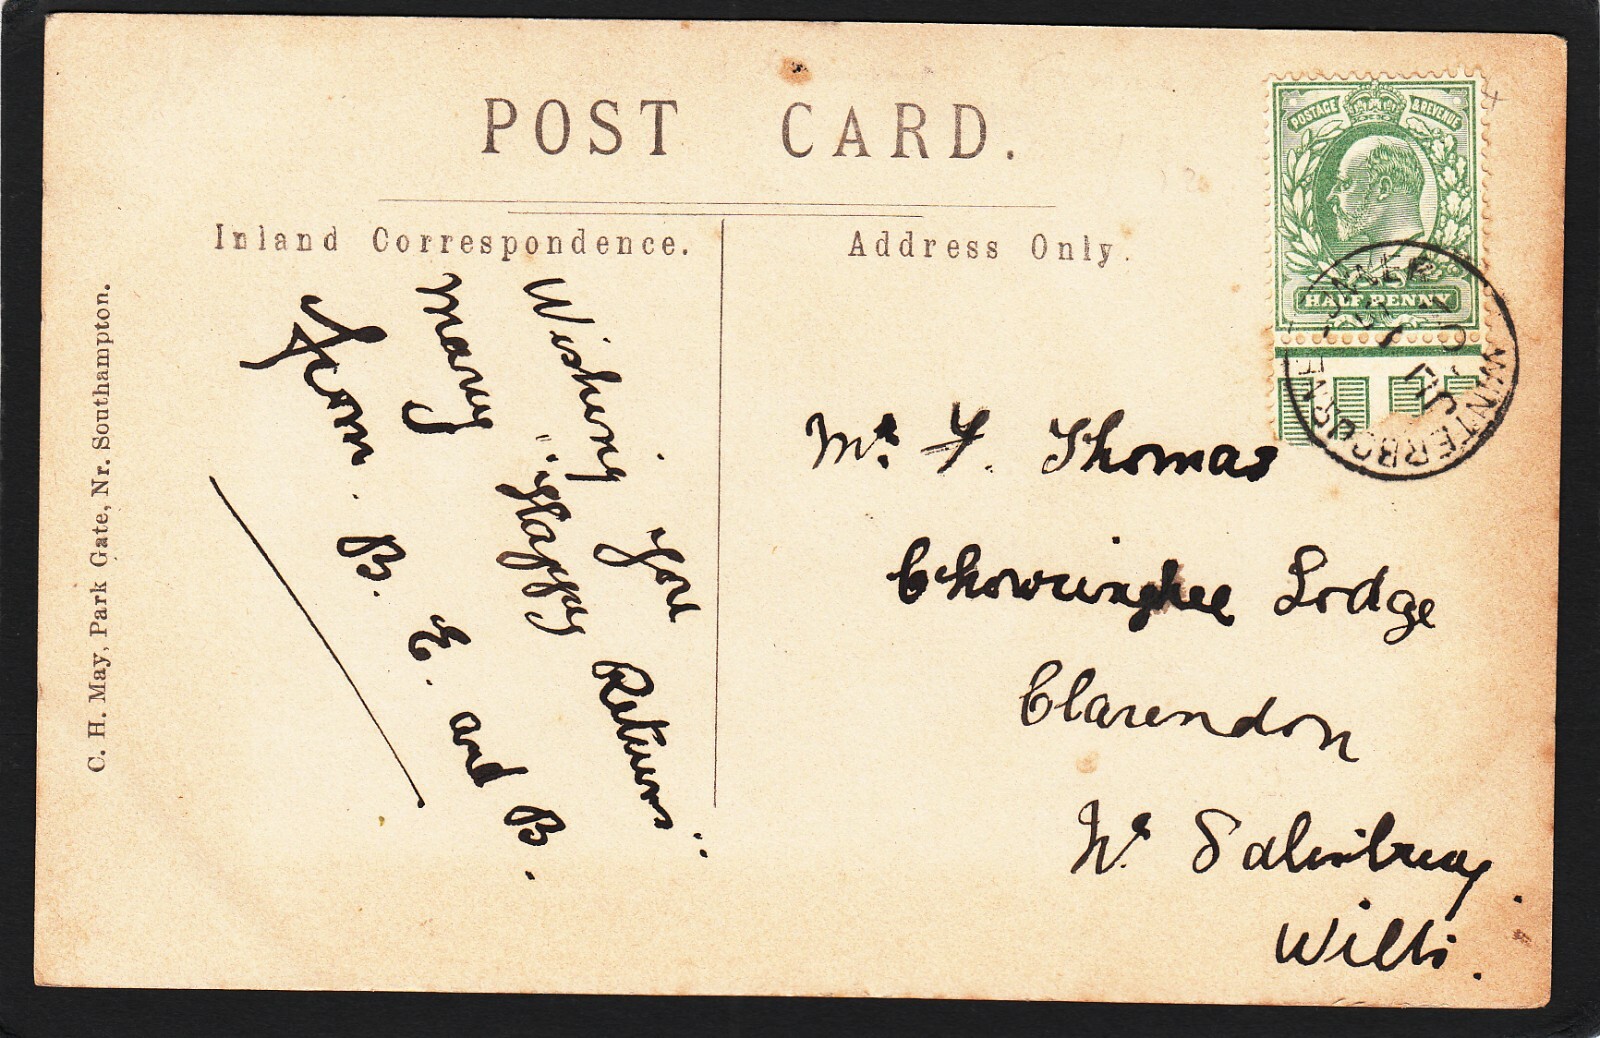 POST CARD.
Inland Correspondence.
Address Only.
C. H. May, Park Gate, Nr. Southampton.
POSTAGE & REVENUE
HALF PENNY
WINTERBOURNE
JU
10
Wishing you
many "Happy Returns".
From. B. E. and B.
Mr. F. Thomas
Chowringhee Lodge
Clarendon
Nr Salisbury.
Wilts.